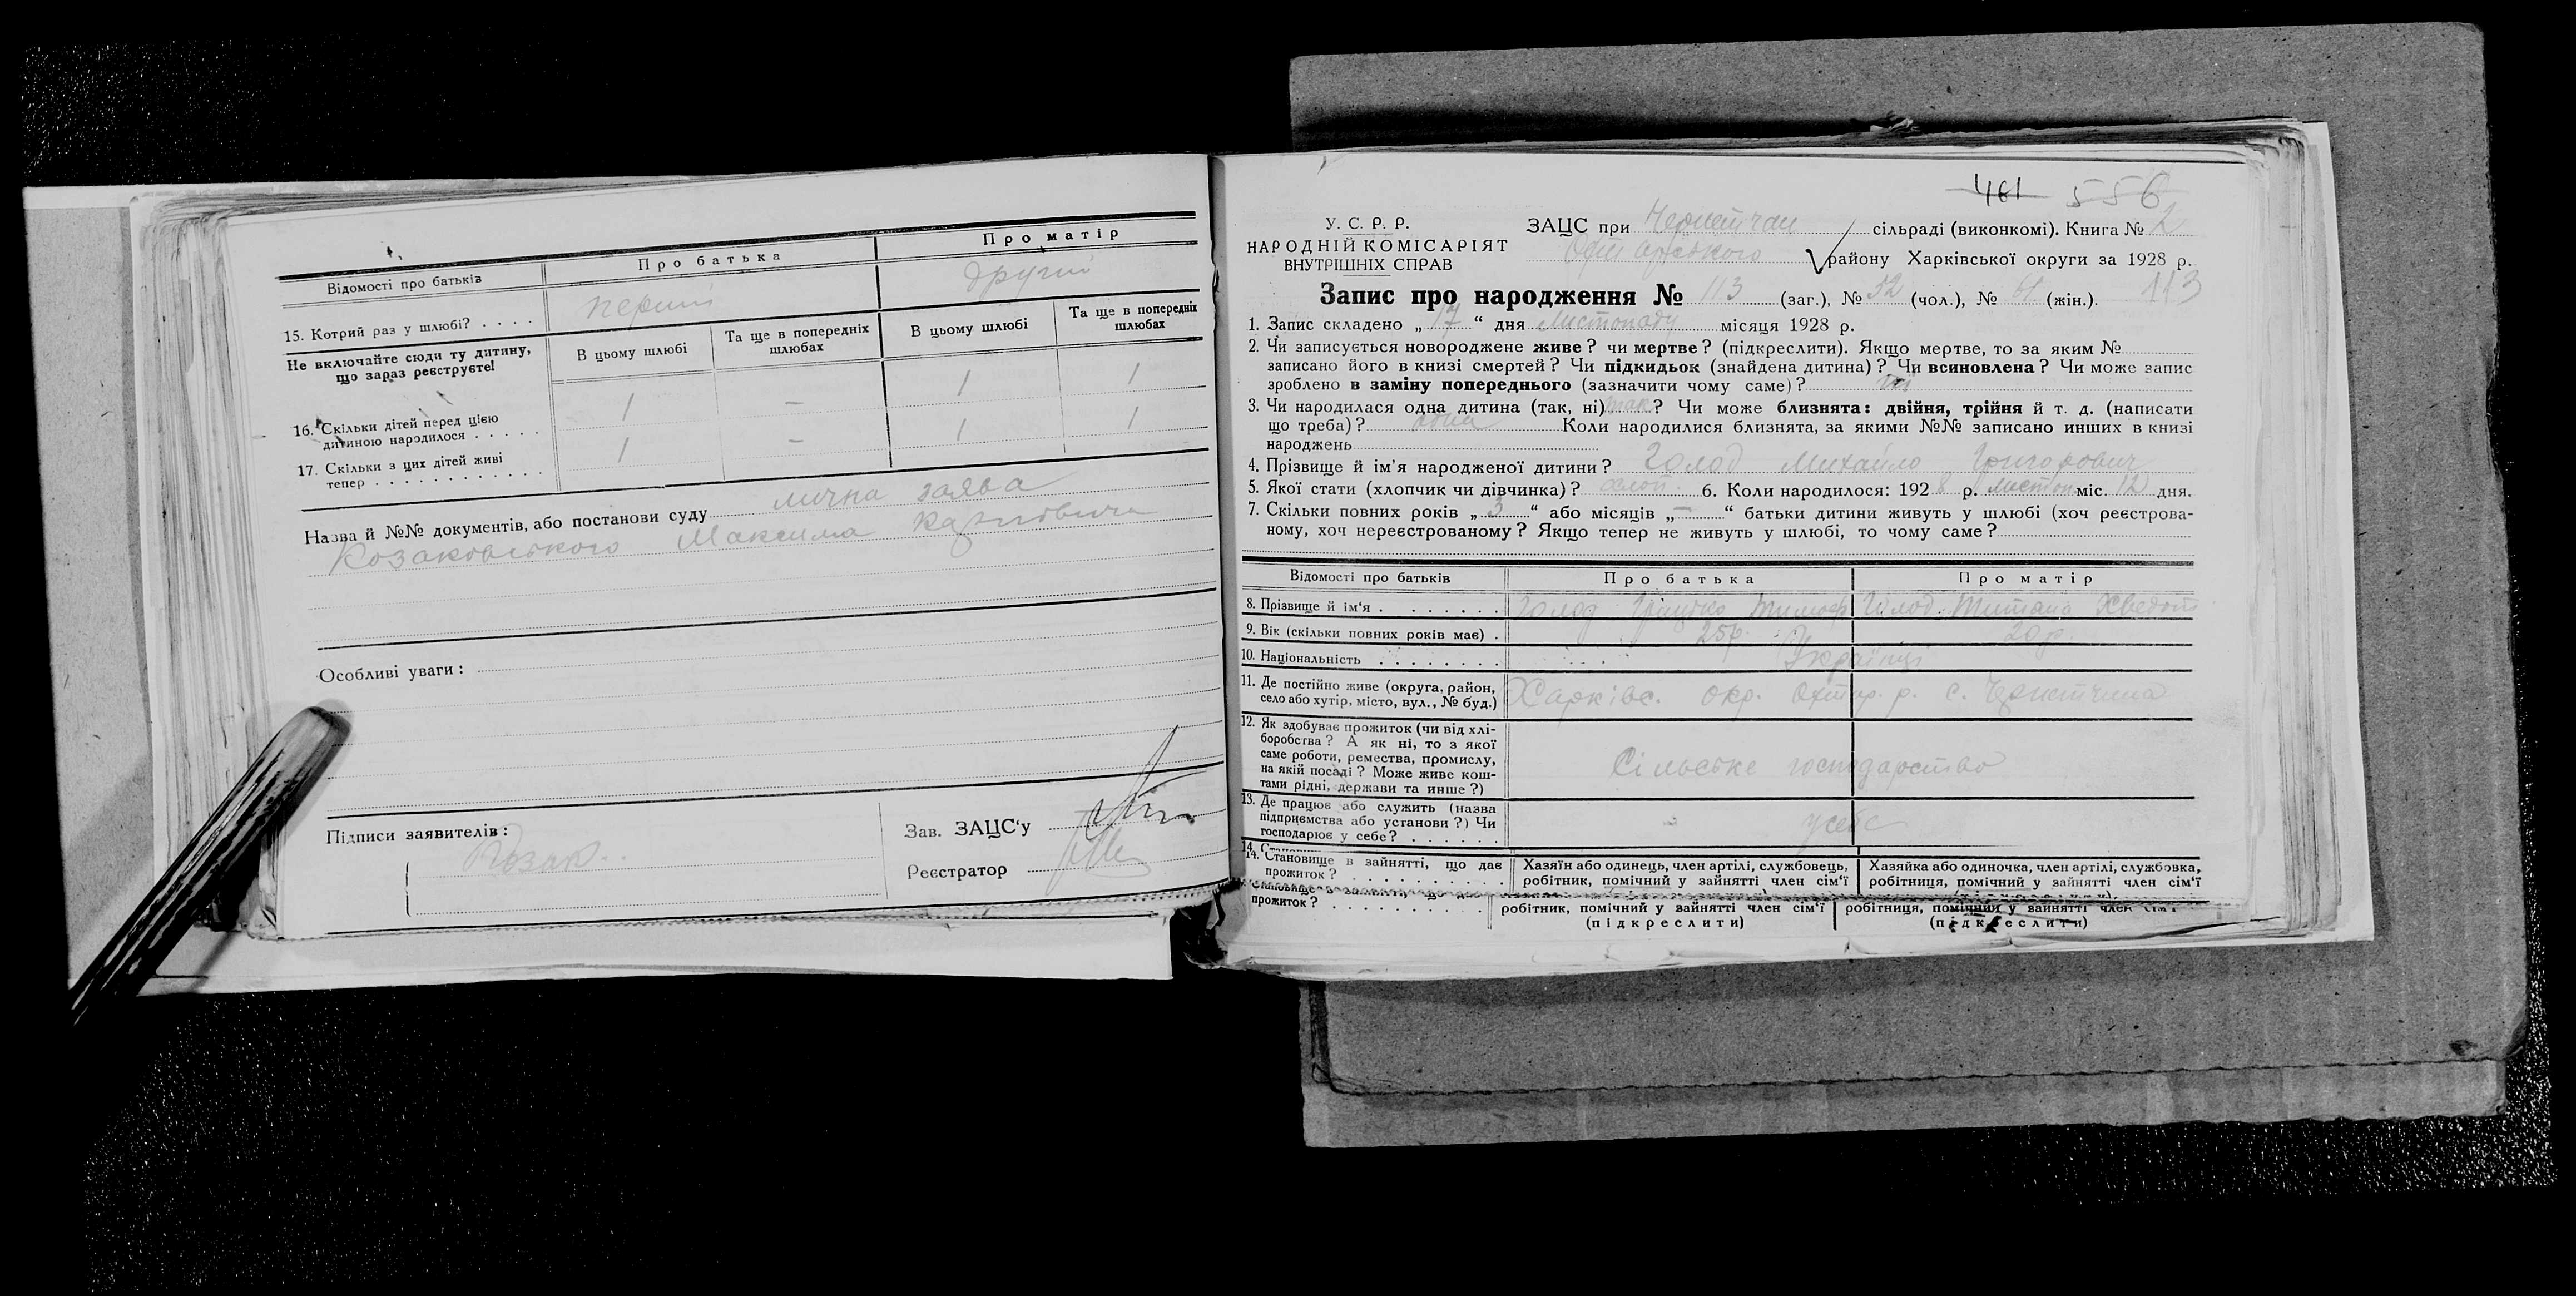 Відомості про батьків | Про батька | Про матір
15. Котрий раз у шлюбі? . . . . | перший | другий
Не включайте сюди ту дитину, що зараз реєструєте! | В цьому шлюбі | Та ще в попередніх шлюбах | В цьому шлюбі | Та ще в попередніх шлюбах
16. Скільки дітей перед цією дитиною народилося . . . . . | 1 | – | 1 | 1
17. Скільки з цих дітей живі тепер . . . . . . . . . . . . | 1 | – | 1 | 1
Назва й №№ документів, або постанови суду лична заява
Козаковського Максима
Особливі уваги:
Підписи заявителів:
Козак..
Зав. ЗАЦС'у
Реєстратор
461 556
У. С. Р. Р.
НАРОДНІЙ КОМІСАРІЯТ
ВНУТРІШНІХ СПРАВ
ЗАЦС при Чернетчан сільраді (виконкомі). Книга № 2
Охтирського району Харківської округи за 1928 р.
Запис про народження № 113 (заг.), № 52 (чол.), № (жін.). 113
1. Запис складено „ 17 “ дня Листопаду місяця 1928 р.
2. Чи записується новороджене живе? чи мертве? (підкреслити). Якщо мертве, то за яким №
записано його в книзі смертей? Чи підкидьок (знайдена дитина)? Чи всиновлена? Чи може запис
зроблено в заміну попереднього (зазначити чому саме)? ні
3. Чи народилася одна дитина (так, ні) так? Чи може близнята: двійня, трійня й т. д. (написати
що треба)? одна Коли народилися близнята, за якими №№ записано инших в книзі
народжень
4. Прізвище й ім'я народженої дитини? Голод Михайло Григорович
5. Якої стати (хлопчик чи дівчинка)? хлоп. 6. Коли народилося: 1928 р. листоп міс. 12 дня.
7. Скільки повних років „ 3 “ або місяців „ – “ батьки дитини живуть у шлюбі (хоч реєстрова-
ному, хоч нереєстрованому? Якщо тепер не живуть у шлюбі, то чому саме?
Відомості про батьків | Про батька | Про матір
8. Прізвище й ім'я . . . . . . . . | Голод Грицько Тимоф | Голод Титяна Хведот
9. Вік (скільки повних років має) . | 25р. | 20 р.
10. Національність . . . . . . . . | Українці
11. Де постійно живе (округа, район, село або хутір, місто, вул., № буд.) | Харківс. окр. Охтир р. с. Чернетчина
12. Як здобуває прожиток (чи від хлі-
боробства? А як ні, то з якої
саме роботи, ремества, промислу,
на якій посаді? Може живе кош-
тами рідні, держави та инше?) | Сільське господарство
13. Де працює або служить (назва
підприємства або установи?) Чи
господарює у себе? . . . . . . | у себе
14. Становище в зайнятті, що дає
прожиток? . . . . . . . . . . | Хазяїн або одинець, член артілі, службовець,
робітник, помічний у зайнятті член сім'ї | Хазяйка або одиночка, член артілі, службовка,
робітниця, помічний у зайнятті член сім'ї
прожиток? . . . . . . . . . . | робітник, помічний у зайнятті член сім'ї
(підкреслити) | робітниця, помічний у зайнятті член сім'ї
(підкреслити)